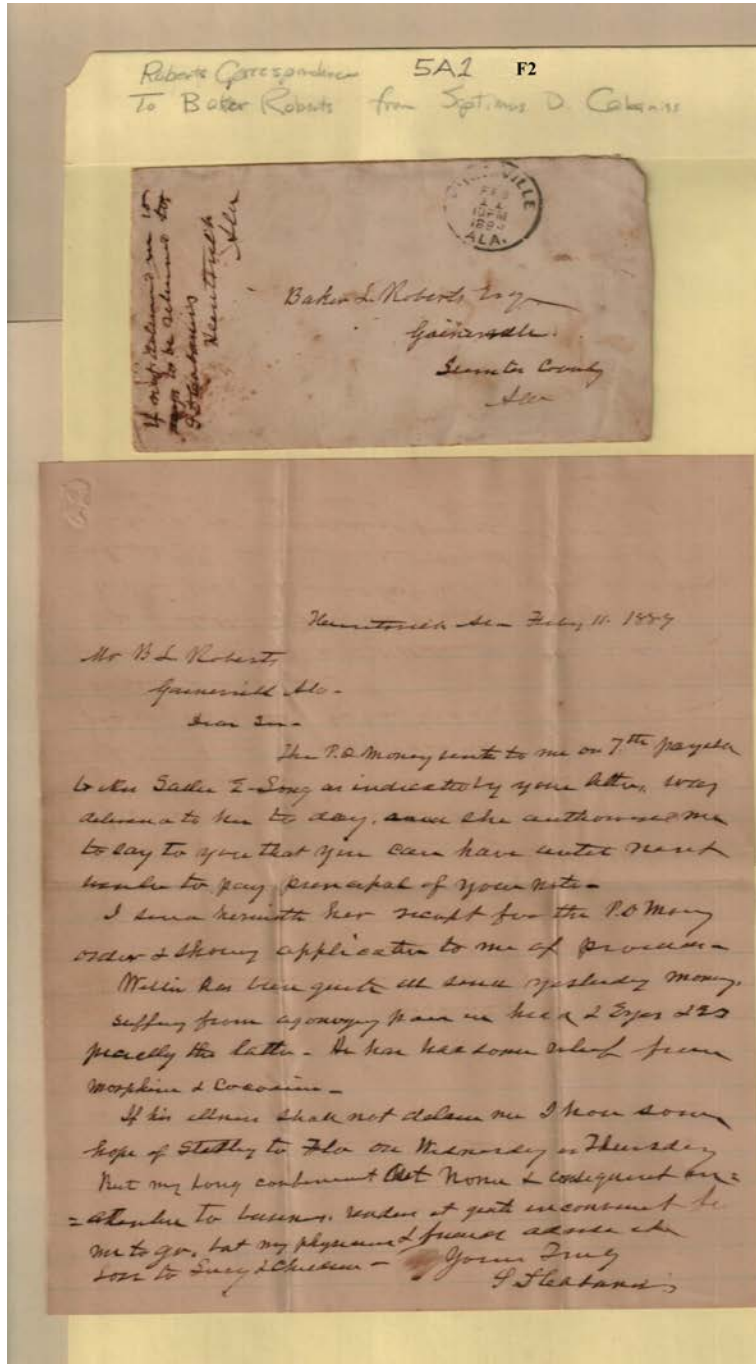 Roberts Correspondence 5A1 F2
To Baker Roberts from Septimus D. Cabaniss
HUNTSVILLE
FEB
10PM
ALA.
If not delivered in 10
days to be returned to
S D Cabaniss
Huntsville
Ala
Baker L Roberts Esq
Gainesville
Sumter County
Ala
Huntsville Ala Feby 11. 1889
Mr B L Roberts
Gainesvill Ala-
Dear Sir-
The P.O Money sent to me on 7th payable
to Mrs Sallie E Long as indicated by your letter, was
delivered to her to day, and she authorised me
to say to you that you can have until next
to pay principal of your note-
I send herewith her receipt for the P.O Money
order & showing application to me of
has been quite ill since yesterday morng,
suffering from agonizing pain in head & Eyes & es
pecially the latter- He has had some relief from
Morphine & Cocaine-
If his illness shall not detain me I have some
hope of to Fla on Wednesday or Thursday
But my long confinement at Home & consequent in=
=attention to business, renders it quite inconvenient to
me to go, but my physician & friends advise
to Lucy & Children- Yours Truly
S D Cabaniss